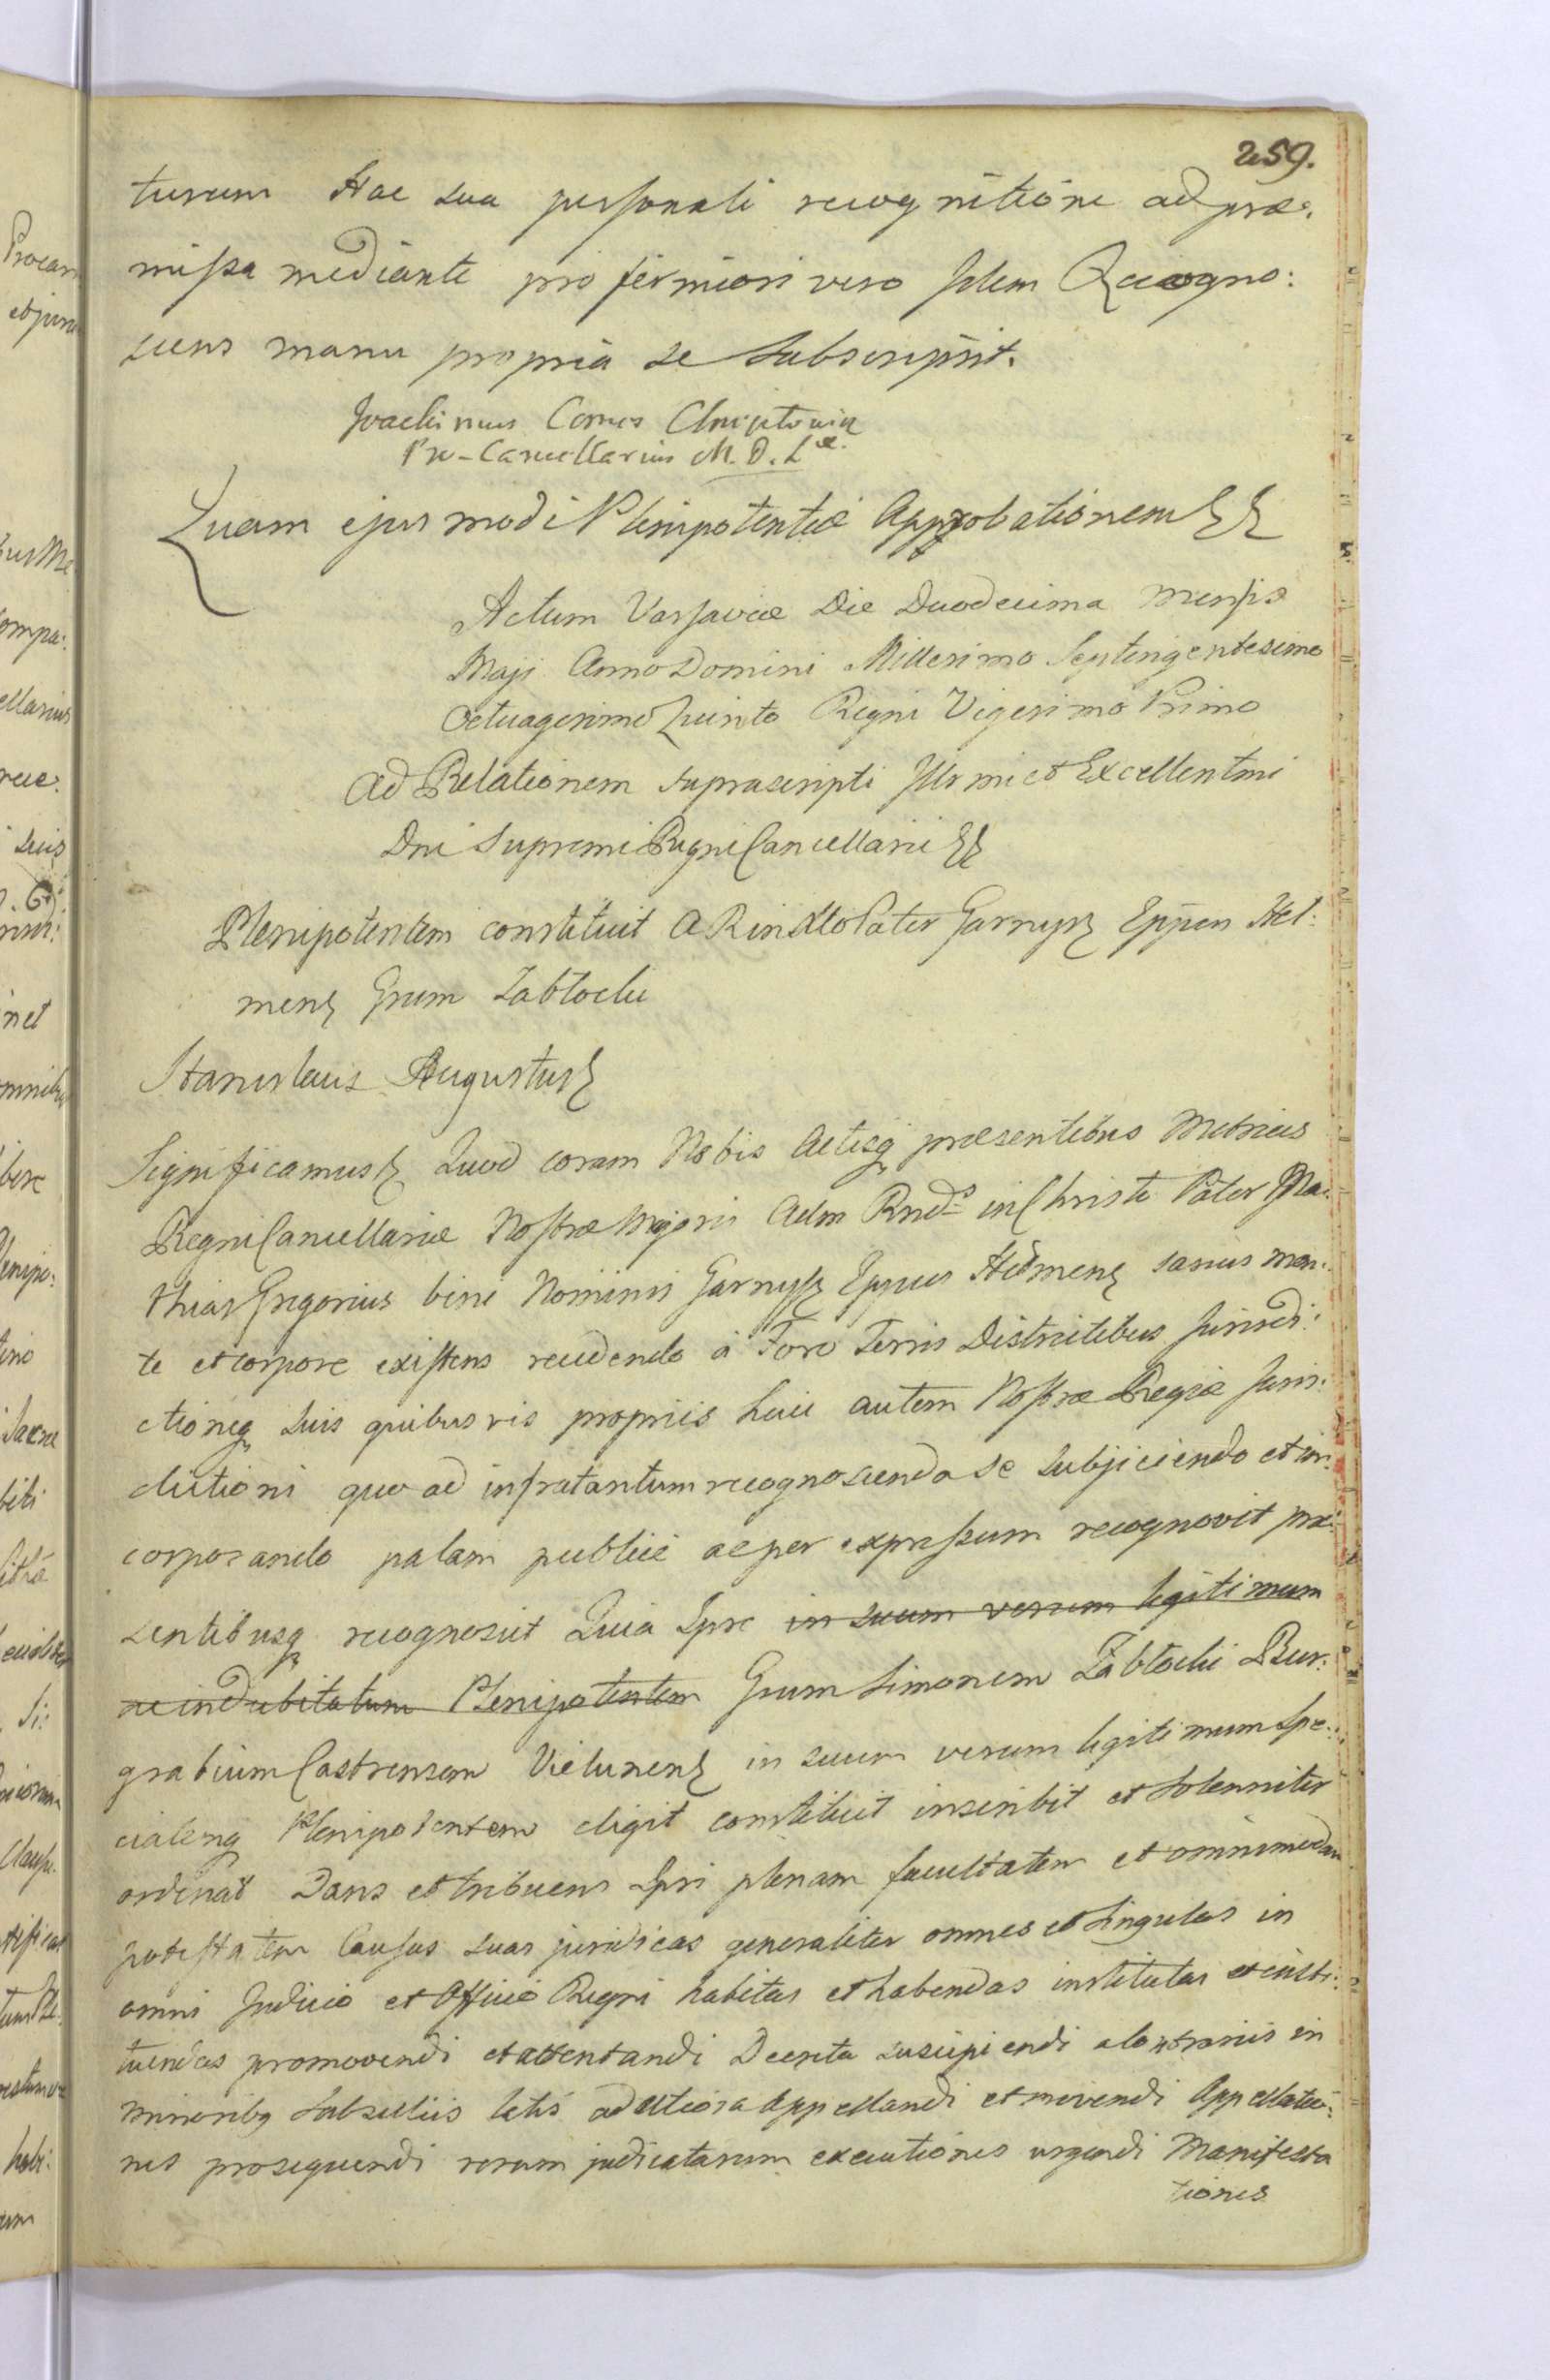 259.
turum Hac sua personali recognitione ad præ.
missa mediante pro firmiori vero Idem Recogno:
scens manu propria se subscripsit.
Joachimus Comes Chreptowicz
Pro-Cancellarius M. D. L.æ
Quam ejusmodi Plenipotentiæ Approbationem
Actum Varsaviæ Die Duodecima Mensis
Maji Anno Domini Millesimo Septingentesimo
Octuagesimo Quinto Regni Vigesimo Primo
Ad Relationem suprascripti Illmi et Excellentmi
Dni Supremi Regni Cancellarii
Plenipotentem constituit A Rin Xto Pater Garnysz Eppen Hel:
mens Grum Zabłocki
Stanislaus Augustus
Significamus Quod coram Nobis Actisq præsentibus Metrices
Regni Cancellariæ Nostræ Majoris Adm Rnds in Christo Pater Ma:
thias Grigorius bini Nominis Garnysz Eppus Helmens sanus men:
te et corpore existens recedendo à Foro Terris Districtibus Jurisdi:
ctioneq suis quibusvis propriis huic autem Nostræ Regiæ Juris:
dictioni quo ad infra tantum recognoscenda se subjiciendo et in:
corporando palam publicè ac per expressum recognovit præ:
sentibusq recognoscit Quia Ipse in suum verum legitimum
ac indubitatum Plenipotentem Grum Simonem Zabłocki Bur:
grabium Castrensem Vielunens in suum verum legitimum Spe:
cialemq Plenipotentem eligit constituit inscribit et solenniter
ordinat Dans et tribuens Ipsi plenam facultatem et omnimodam
potestatem Causas suas juridicas generaliter omnes et singulas in
omni Judicio et Officio Regni habitas et habendas institutas et insti:
tuendas promovendi et attentandi Decreta suscipiendi ab
minoribq Subselliis latis ad altiora Appellandi et movendi Appellatio:
nes prosequendi rerum judicatarum executiones urgendi Manifesta
tiones